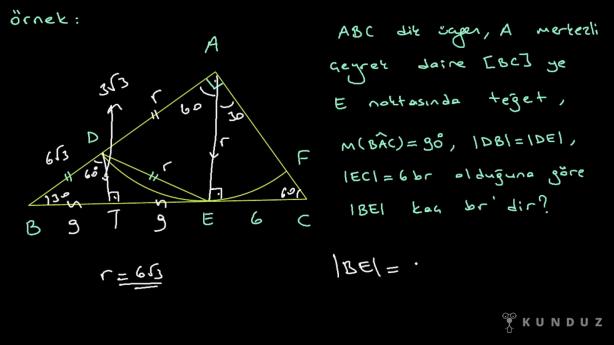 örnek:
ABC dik üçgen, A merkezli
çeyrek daire [BC] ye
E noktasında teğet,
m(BÂC)=90°, |DB|=|DE|,
|EC|=6 br olduğuna göre
|BE| kaç br'dir?
A
3√3
r
60
30
D
r
6√3
60°
r
F
30
60°
B
9
T
9
E
6
C
r=6√3
|BE|= .
KUNDUZ